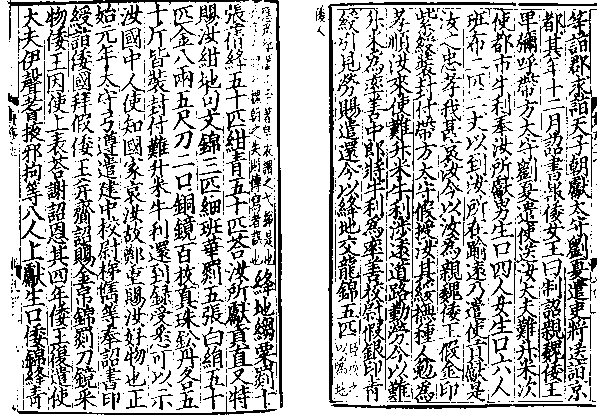 等詣郡求詣天子朝獻太守劉夏遣吏將送詣京
都其年十二月詔書報倭女王曰制詔親魏倭王
卑彌呼帶方太守劉夏遣使送汝大夫難升米次
使都市牛利奉汝所獻男生口四人女生口六人
班布二匹二丈以到汝所在踰遠乃遣使貢獻是
汝之忠孝我甚哀汝今以汝為親魏倭王假金印
紫綬裝封付帶方太守假授汝其綏撫種人勉為
孝順汝來使難升米牛利涉遠道路勤勞今以難
升米為率善中郎將牛利為率善校尉假銀印青
綬引見勞賜遣還今以絳地交龍錦五匹
以為地
倭人
謂之弋綈是也
之失則傳寫者誤也
絳地縐粟罽十
張蒨絳五十匹紺青五十匹荅汝所獻貢直又特
賜汝紺地句文錦三匹細班華罽五張白絹五十
匹金八兩五尺刀二口銅鏡百枚真珠鈆丹各五
十斤皆裝封付難升米牛利還到錄受悉可以示
汝國中人使知國家哀汝故鄭重賜汝好物也正
始元年太守弓遵遣建中校尉梯儁等奉詔書印
綬詣倭國拜假倭王并齎詔賜金帛錦罽刀鏡采
物倭王因使上表荅謝詔恩其四年倭王復遣使
大夫伊聲耆掖邪狗等八人上獻生口倭錦絳青